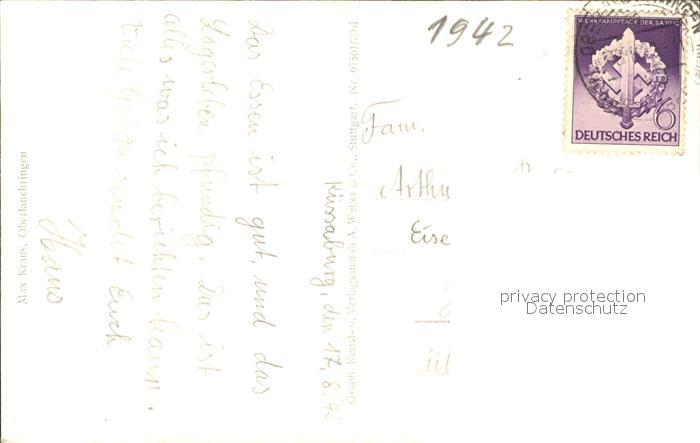 1942
WEHRKAMPFTAGE DER SA 1942
6
DEUTSCHES REICH
Fam.
Arthu
Eise
privacy protection
Datenschutz
Küssaburg, den 17. 8. 42
Das Essen ist gut, und das
Lagerleben pfundig. Das ist
alles was ich berichten kann.
Viele Grüsse sendet Euch
Hans
Graph. Kunst- u. Verlagsanstalt A. Weber & Co., Stuttgart, Nr.
Max Kraus, Oberlauchringen